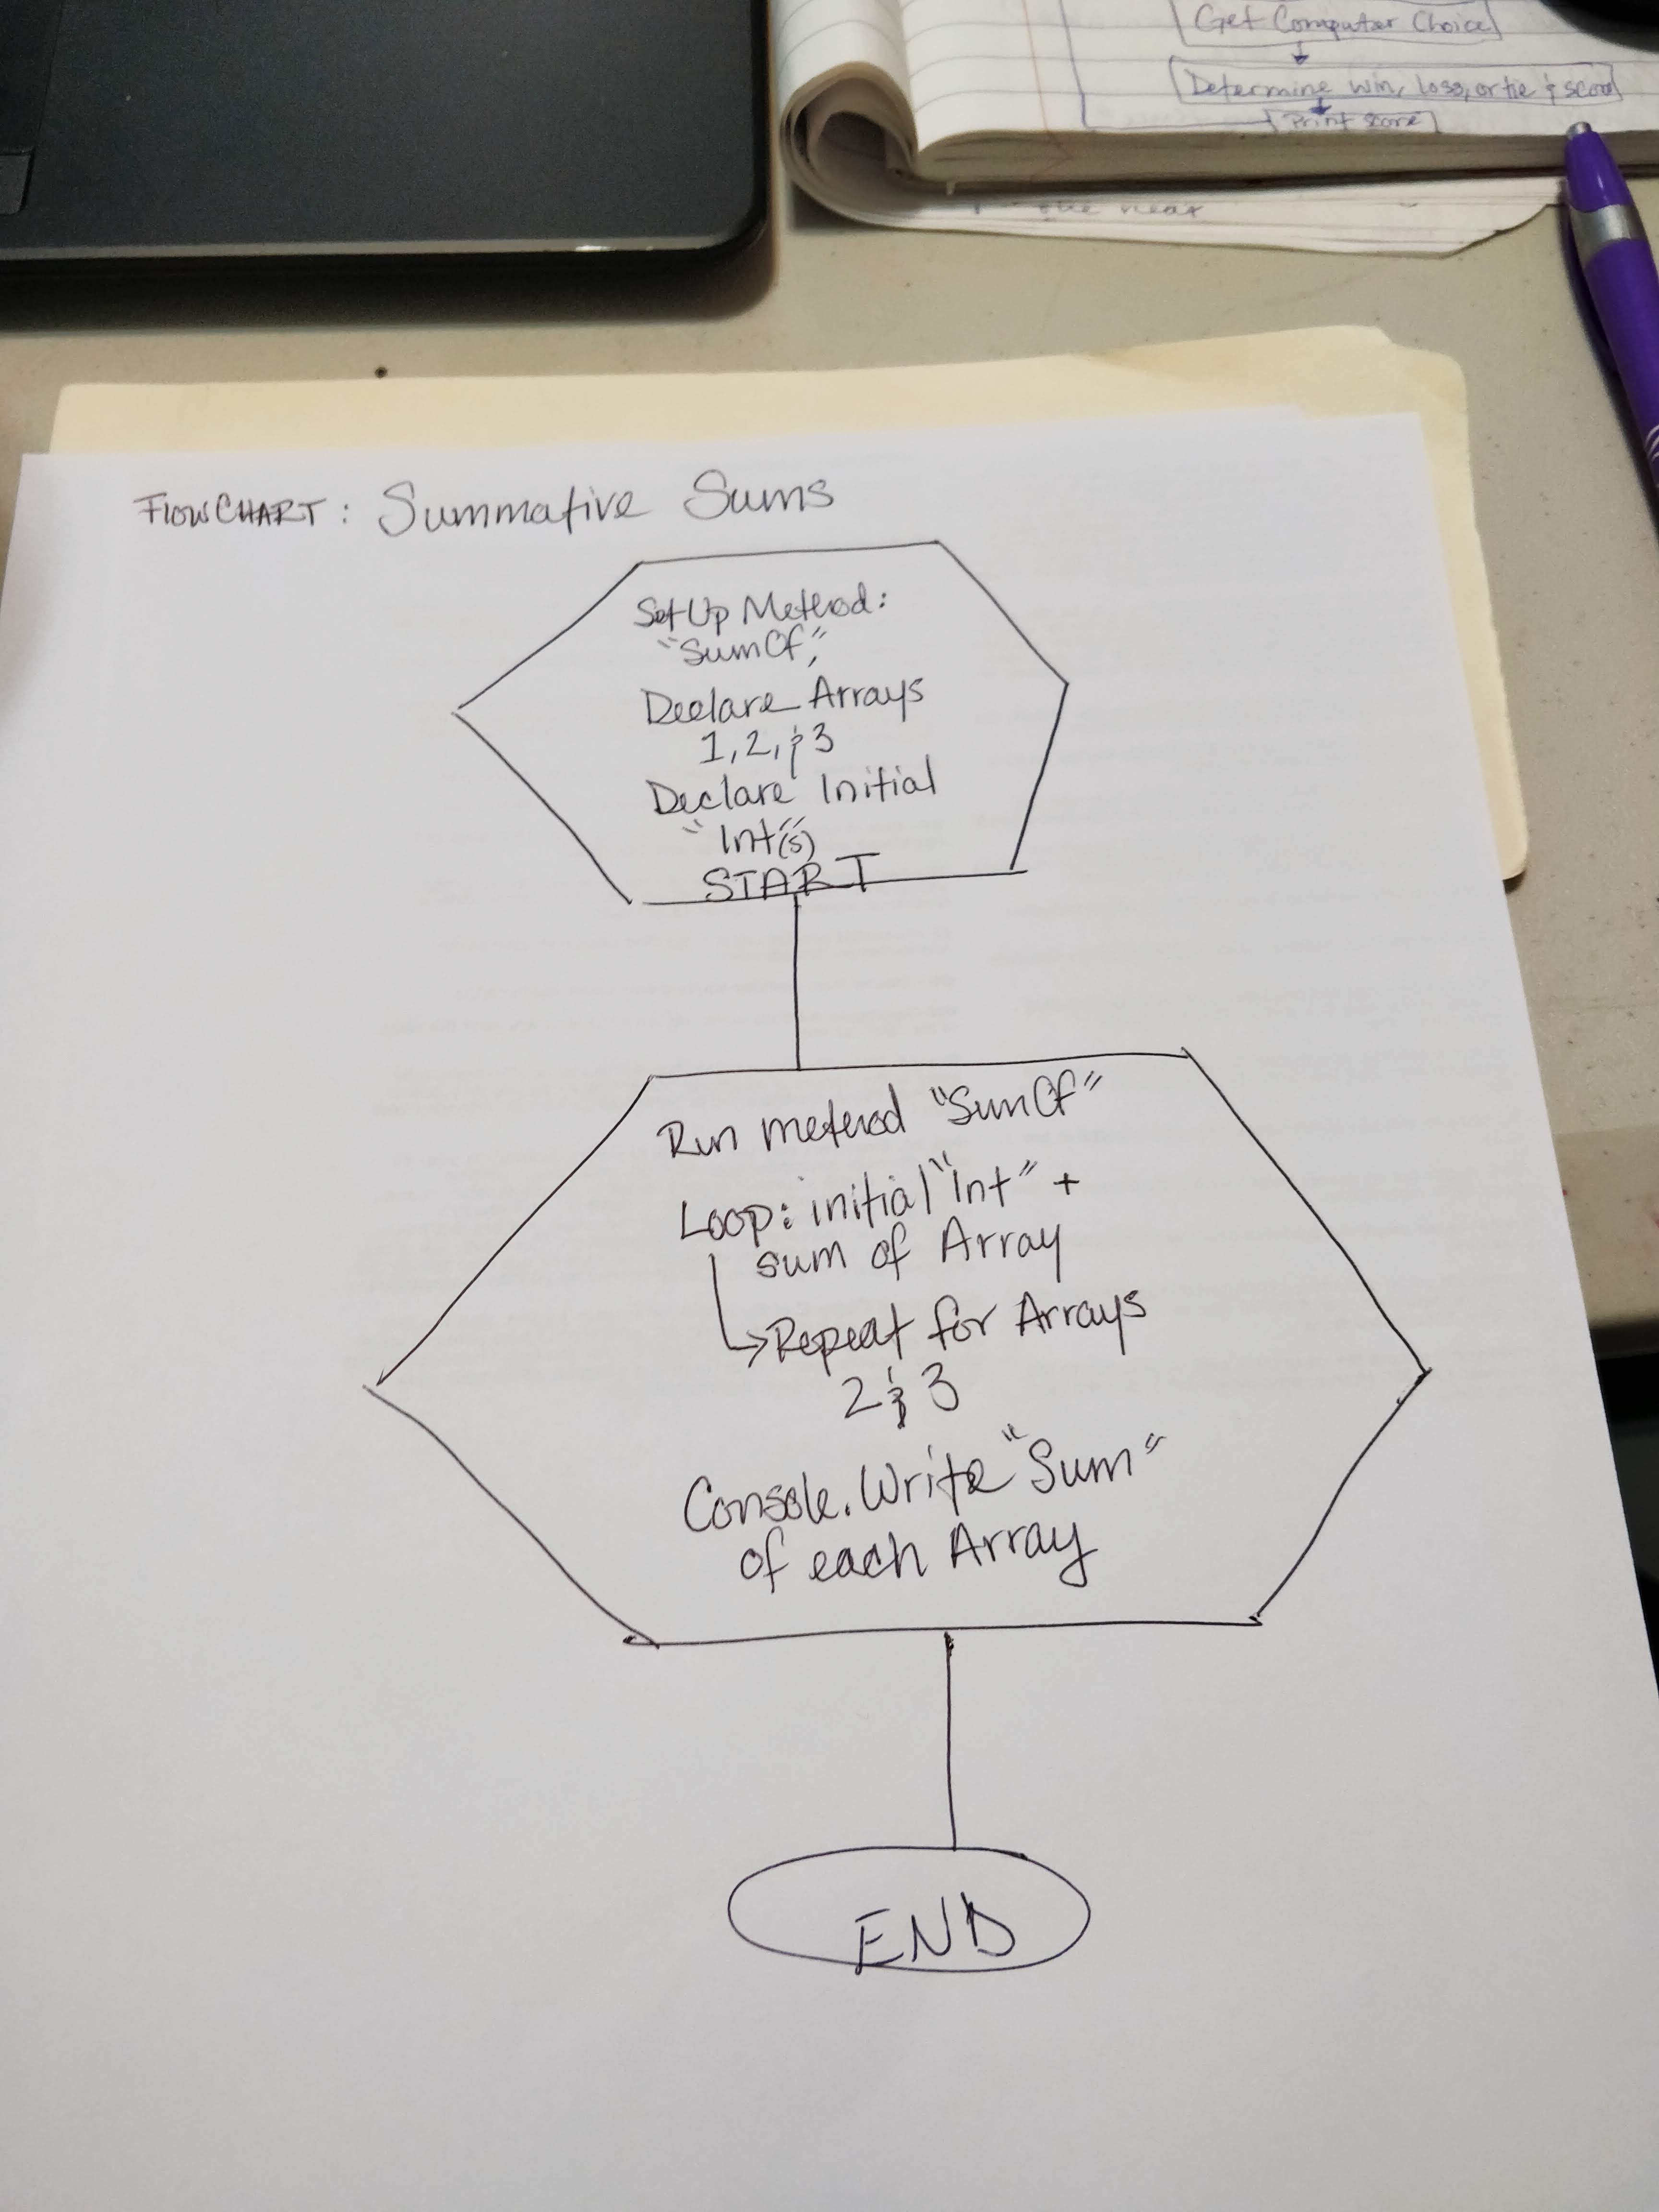 Get Computer Choice
Determine win, loss, or tie & score
Print Score
the near
FLOWCHART: Summative Sums
Set Up Method:
"SumOf",
Declare Arrays
1, 2, & 3
Declare Initial
"Int(s)"
START
Run method "SumOf"
Loop: initial "Int" +
sum of Array
Repeat for Arrays
2 & 3
Console.Write "Sum"
of each Array
END